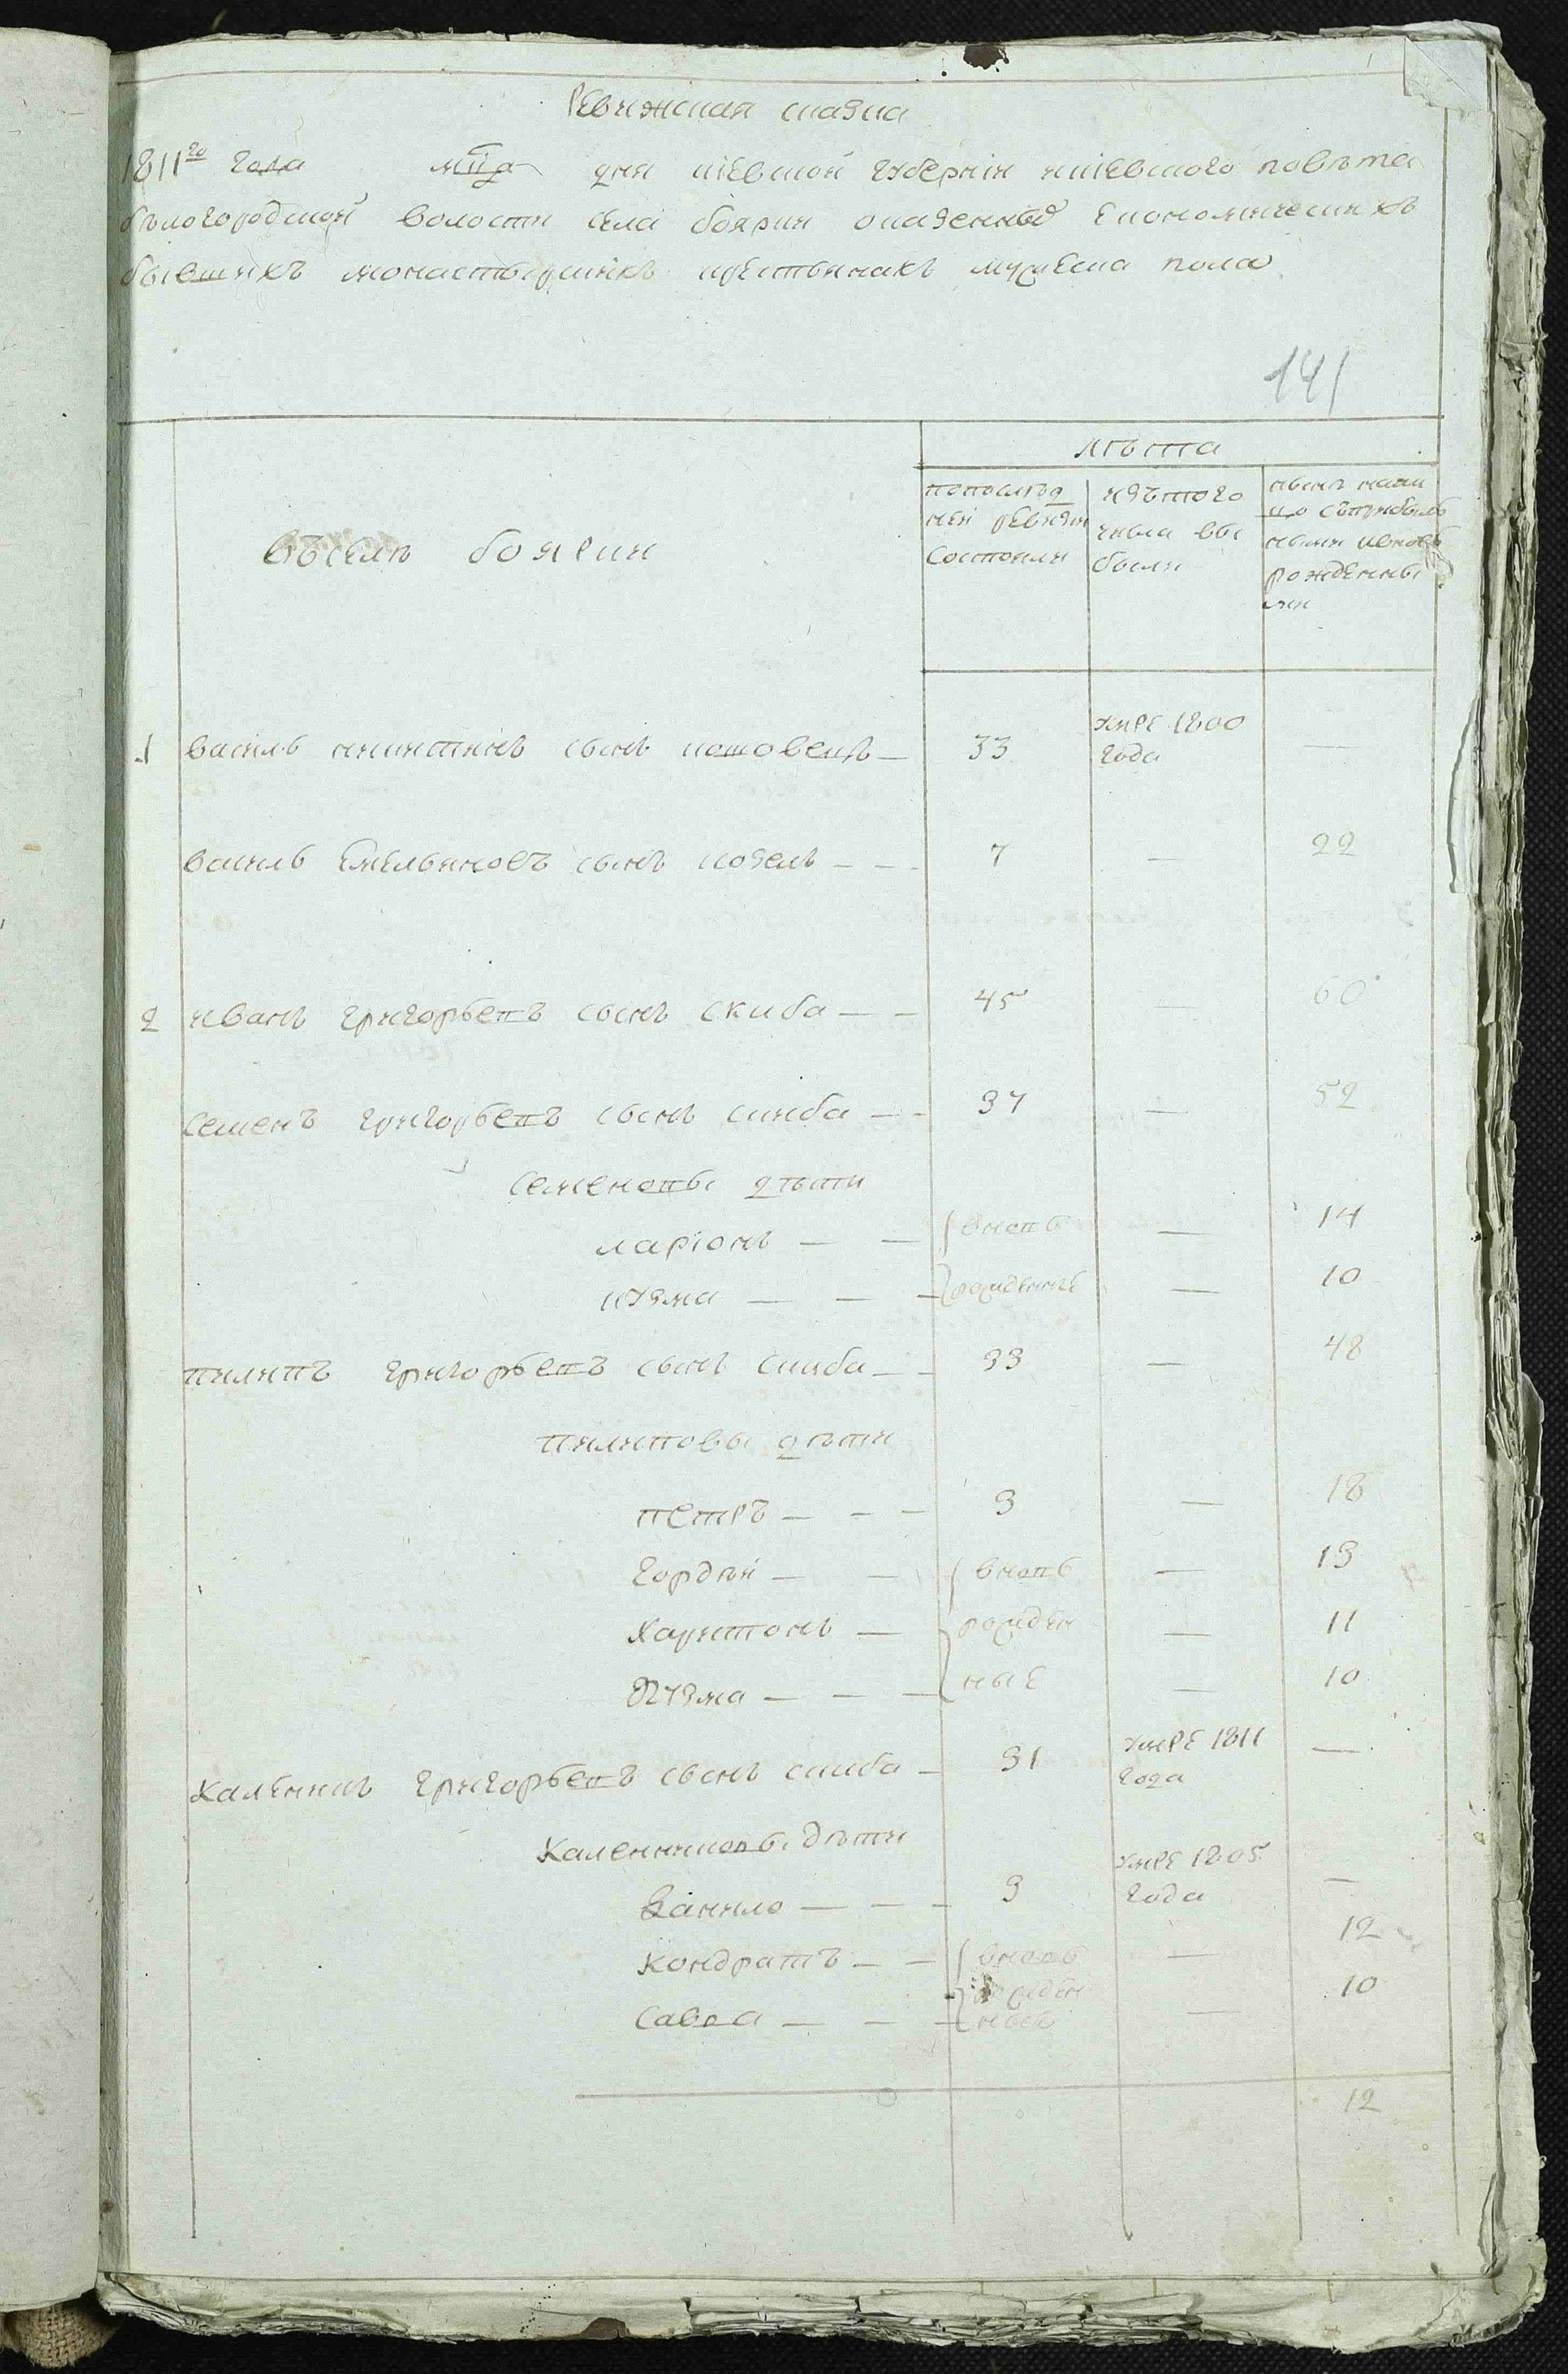 Ревижская сказка
1811го года мца дня киевской губернiи киевского повѣта
бѣлогородской волости села боярки оказенныхъ економическихъ
бывшихъ монастырскихъ крестьянахъ мужеска пола
141
лѣта
въ селѣ боярки
по послѣд
ней ревизiи
состояли
изътого
числа вы
были
нынѣ на ли
цо съприбыль
ными ивновь
рожденны
ми
1 василь никитинъ сынъ котовенъ — 33 умре 1800 года —
василь Емельяновъ сынъ козель — — 7 — 22
2 иванъ григорьевъ сынъ скиба — — 45 — 60
семенъ григорьевъ сынъ скиба — — 37 — 52
семеновы дѣти
ларiонъ — — вновь — 14
кузма — — — рожденные — 10
пилипъ григорьевъ сынъ скиба — — 33 — 48
пилиповы дѣти
петръ — — — 3 — 18
гордѣй — — вновь — 13
харитонъ — рожден — 11
кузма — — — ные — 10
каленикъ григорьевъ сынъ скиба — 31 умре 1811 года —
каленниковы дѣти
данило — — — 3 умре 1805 года —
кондратъ — — вновь — 12
савва — — — рожденные — 10
12